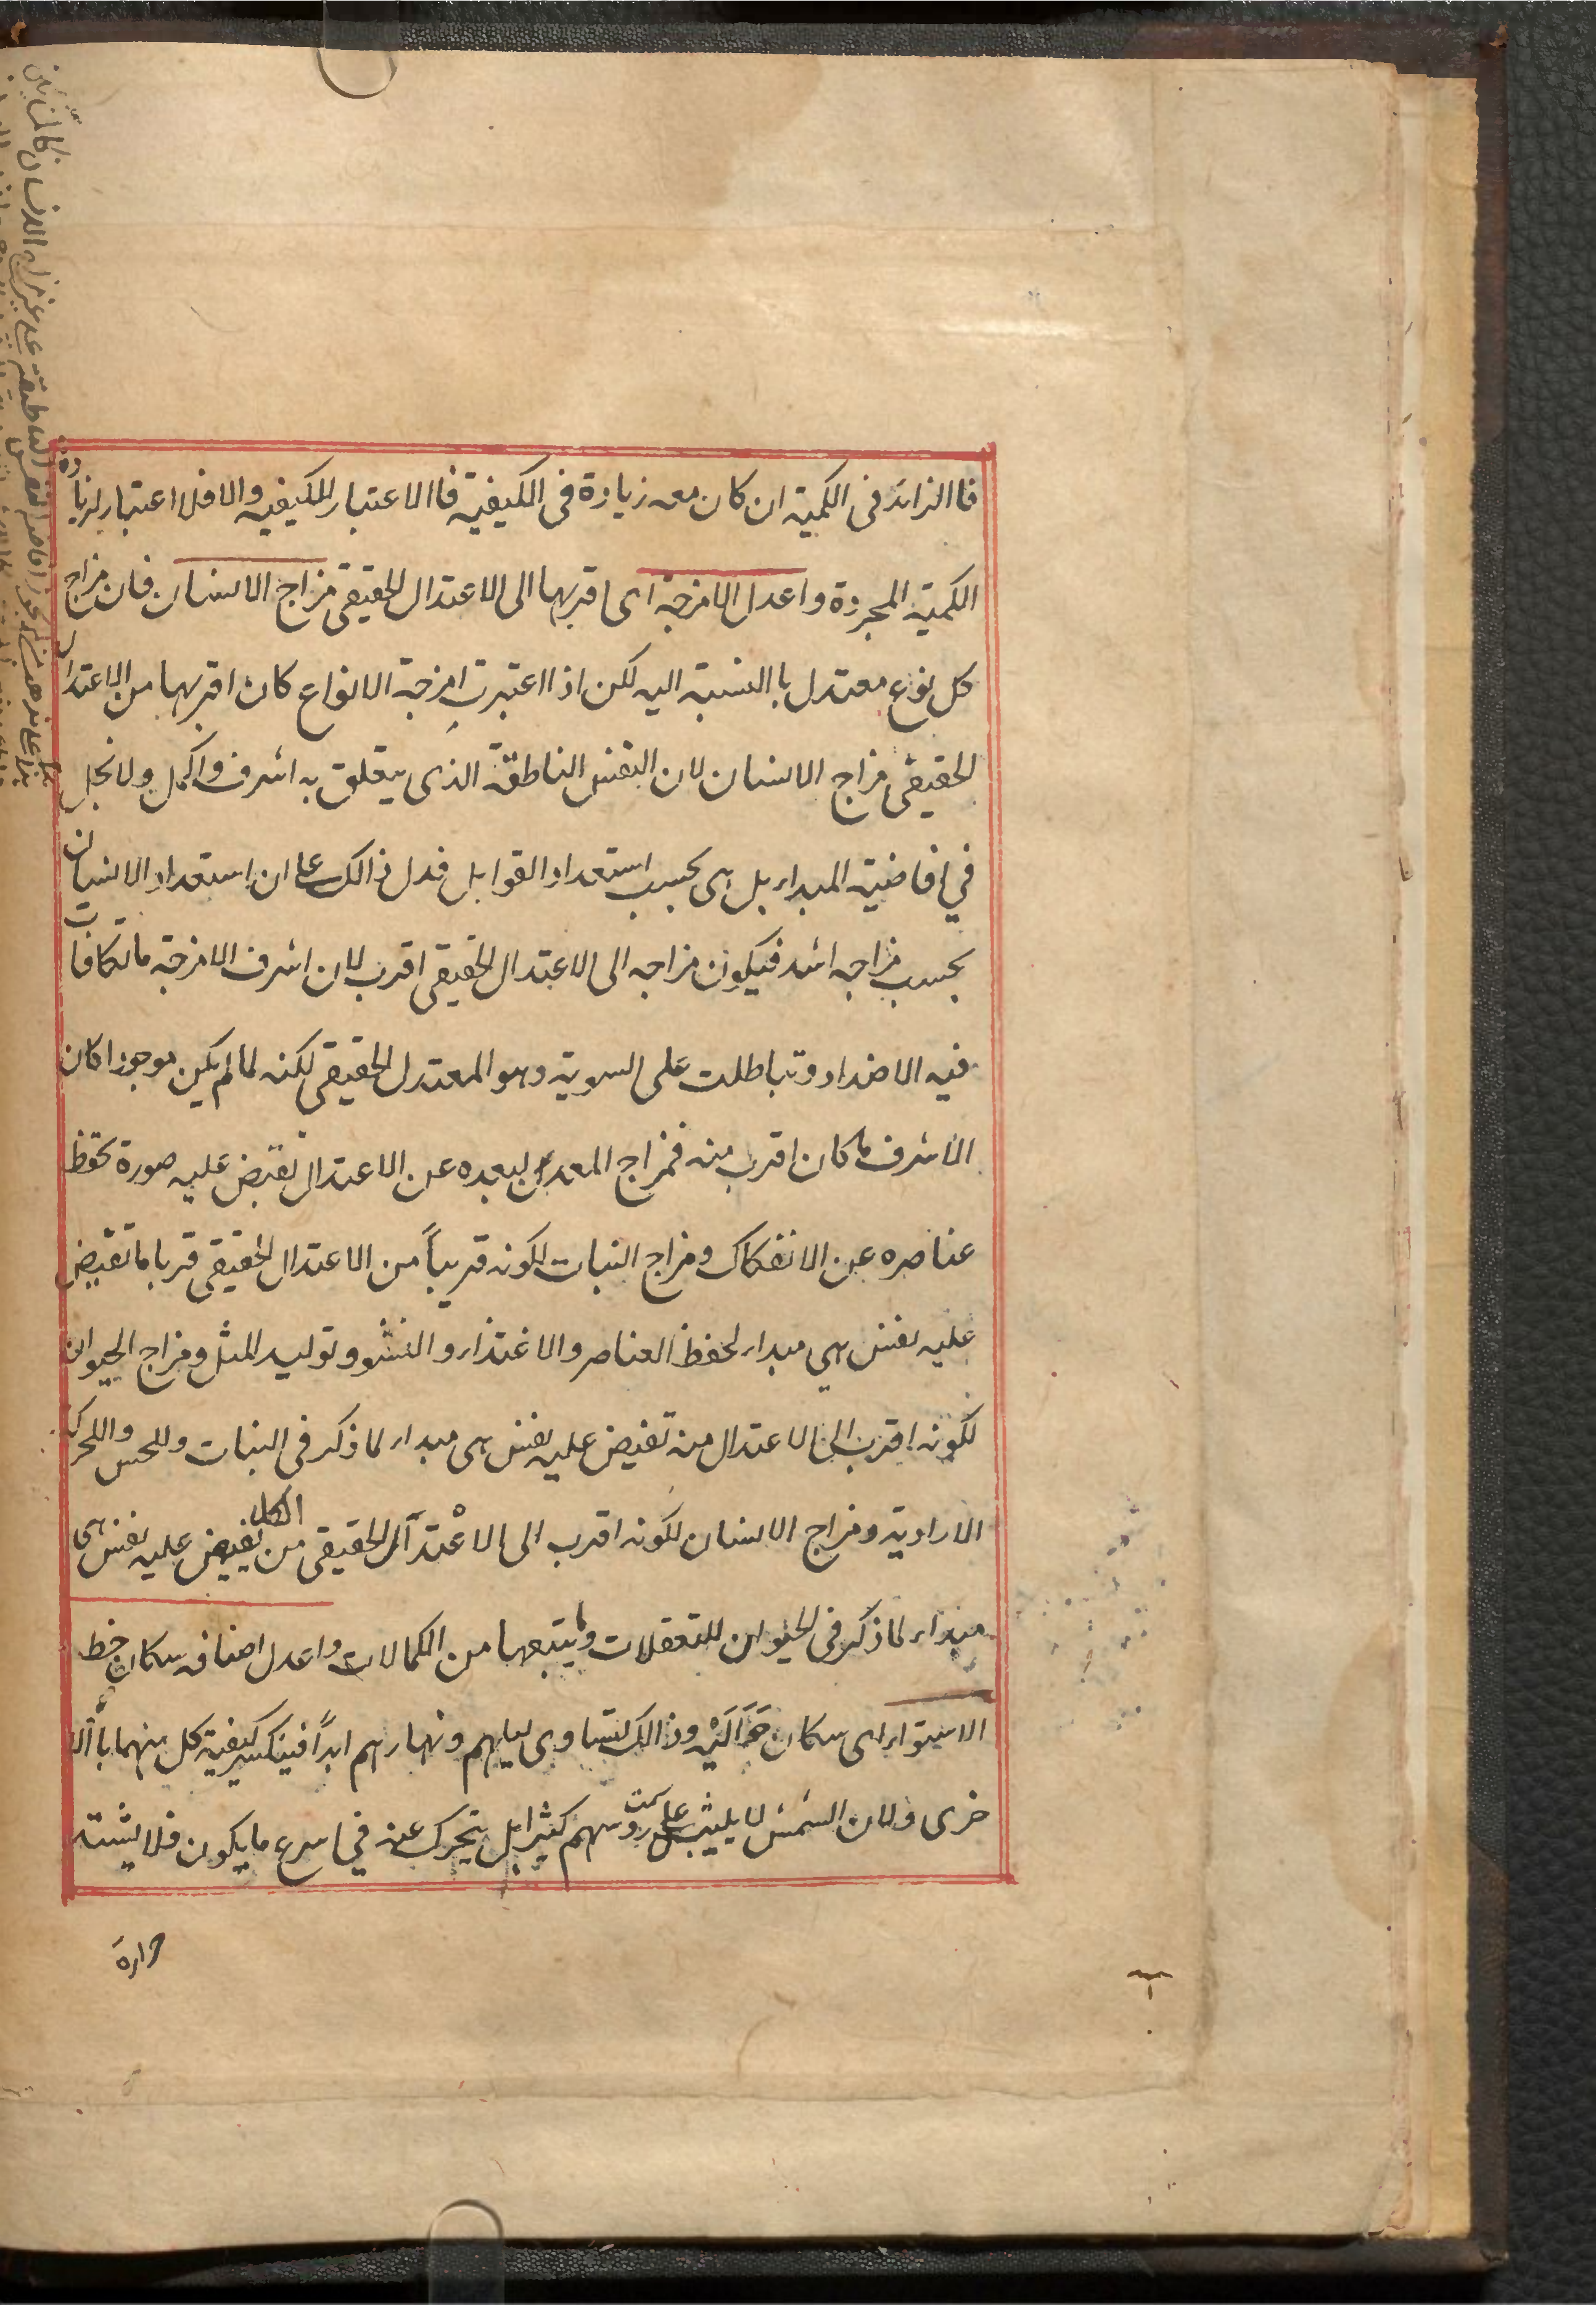 فا الزائد فى الكمية ان كان معه زيادة فى الكيفية فا الاعتبار للكيفيه والا فلا اعتبار لزيادة
الكمية المجردة واعدل الامزجة اى اقربها الى الاعتدال الحقيقى مزاج الانسان فان مزاج
كل نوع معتدل با النسبة اليه لكن اذا اعتبرت امزجة الانواع كان اقربها من الاعتدال
الحقيقى مزاج الانسان لان النفس الناطقة الذى يتعلق به اشرف واكمل ولا بخل
في افاضية المبداء بل هى بحسب استعداد القوابل فدل ذالك على ان استعداد الانسان
بحسب مزاجه اشد فيكون مزاجه الى الاعتدال الحقيقى اقرب لان اشرف الامزجة ما تكافات
فيه الاضداد وتباطلت على السوية وهو المعتدل الحقيقى لكنه لما لم يكن موجودا كان
الاشرف ما كان اقرب منه فمزاج المعدن لبعده عن الاعتدال تفيض عليه صورة تحفظ
عناصره عن الانفكاك ومزاج النبات لكونه قريباً من الاعتدال الحقيقى قربا ما تفيض
عليه نفس هي مبداء لحفظ العناصر والاغتذاء والنشو وتوليد المثل ومزاج الحيوان
لكونه اقرب الى الاعتدال منه تفيض عليه نفس هى مبداء لما ذكر فى النبات وللحس واللحركة
الارادية ومزاج الانسان لكونه اقرب الى الاعتدال الحقيقى من الكل يفيض عليه نفس هى
مبداء لما ذكر فى الحيوان للتعقلات وما يتبعها من الكمالات واعدل اصنافه سكان خط
الاستواء اى سكان حَوَالَيْه وذالك لتساوى ليلهم ونهارهم ابداً فينكسر كيفية كل منهما با الا
خرى ولان الشمس لا يلبث على سمت روسهم كثيرا بل يتحرك عنه في اسرع ما يكون فلا يشتد
حرارة